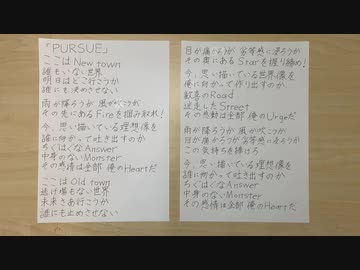 「PURSUE」
ここは New town
誰もいない世界
明日はどこ行こうか
誰にも決めさせない
雨が降ろうか 風がふこうか
その先にあるFireを掴み取れ!
今、思い描いている理想像を
誰に向かって吐き出すのか
ちぐはぐなAnswer
中身のないMonster
その感情は全部 俺のHeartだ
ここは Old town
逃げ場もない世界
未来さあ行こうか
誰にも止めさせない
目が痛だろうが 劣等感に浸ろうか
その奥にある Starを握り締め!
今、思い描いている世界像を
俺に向かって作り出すのか
歓喜のRoad
迷走したStreet
その感動は全部 俺のUrgeだ
雨が降ろうか 風が吹こうか
目が痛かろうが 劣等感に浸ろうか
この気持ちを捧げろ
今、思い描いている理想像を
誰に向かって吐き出すのか
ちぐはぐなAnswer
中身のないMonster
その感情は全部 俺のHeartだ